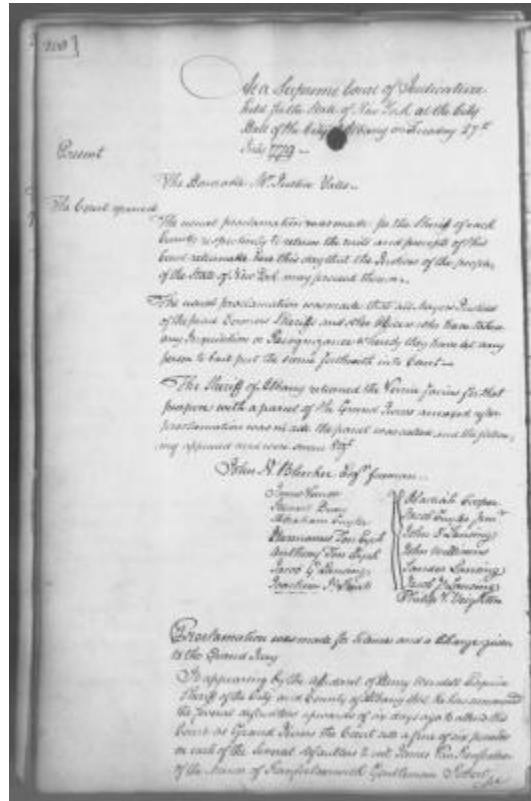 At a Supreme Court of Judicature
held for the State of New York at the City
Hall of the City Albany on Tuesday 27th
July 1779
Present
The Honorable Mr Justice Yates
The Court opened
The usual proclamation was made for the Sheriff of each
County respectively to return the writs and precepts of this
Court returnable here this day that the Justices of the people
of the State of New York may proceed thereon
The usual proclamation was made that all Mayors Justices
of the peace Coroners Sheriffs and other Officers who have taken
any Inquisition or Recognizance whereby they have let any
person to bail put the same forthwith into Court
The Sheriff of Albany returned the Venire facias for that
purpose with a panel of the Grand Jurors annexed after
proclamation was made the panel was called and the
appeared and were sworn
John N. Bleecker Esqr foreman
Stewart
Abraham Cuyler
Hermanus Ten Eyck
Anthony Ten Eyck
Jacob G. Lansing
Obadiah Cooper
Jacob Cuyler Junr
John Lansing
John Williams
Sander Lansing
Jacob Lansing
Philip
Proclamation was made for Silence and a Charge given
to the Grand Jury
It appearing by the affidavit of Henry Wendell Esquire
Sheriff of the City and County of Albany that he has summoned
the several defaulters upwards of six days ago to attend this
Court as Grand Jurors the Court sets a fine of six pounds
on each of the several defaulters to wit James Van Rensselaer
of the Manor of Rensselaerswick Gentleman Robert